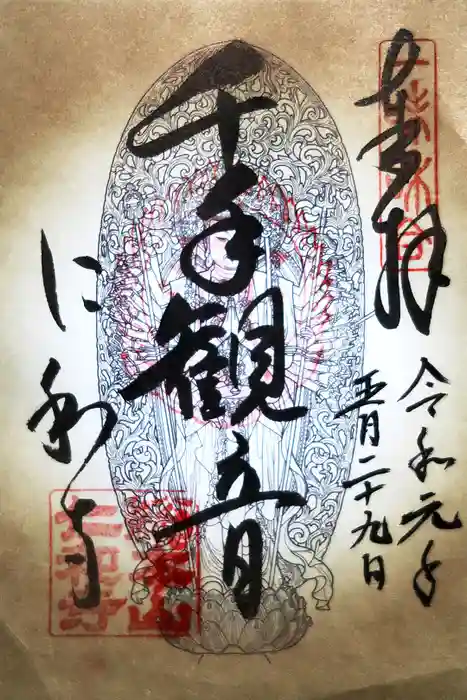 奉拝
令和元年
五月二十九日
千手觀音
仁和寺
仁和寺